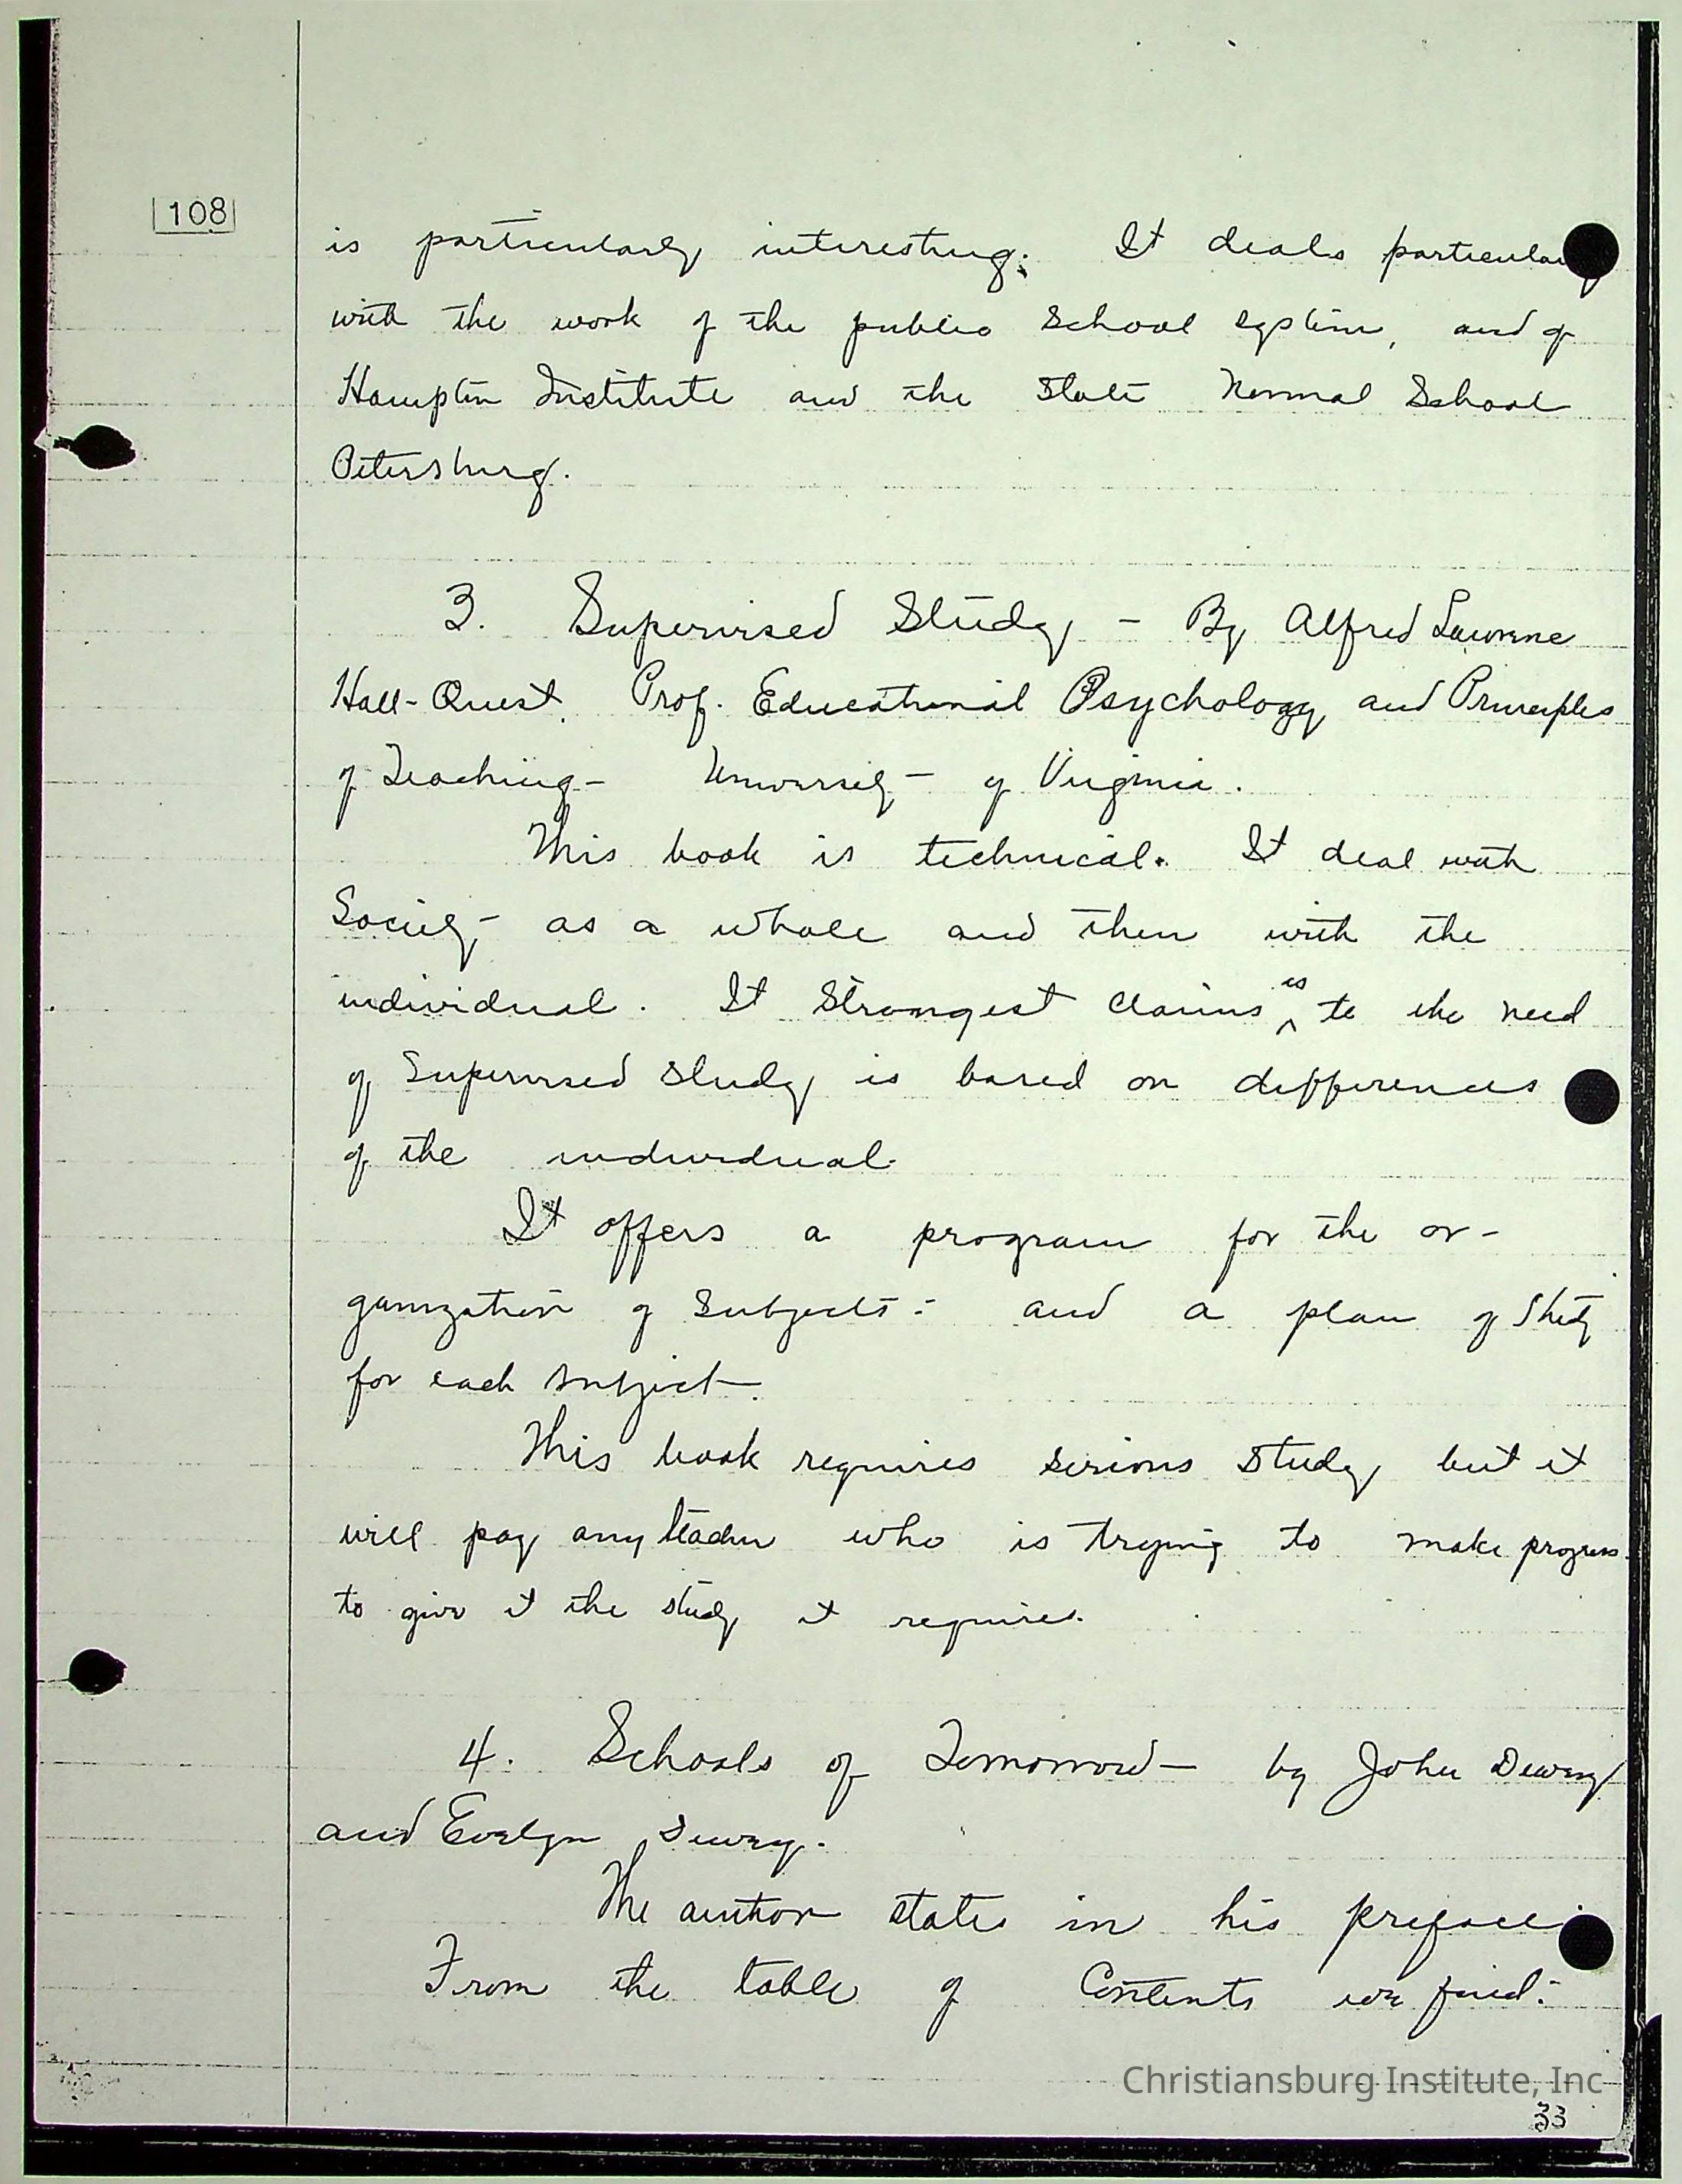 108
is particularly interesting. It deals particularly
with the work of the public school system, and of
Hampton Institute and the State Normal School
Petersburg.
3. Supervised Study - By Alfred Lawrence
Hall-Quest, Prof. Educational Psychology and Principles
of Teaching - University of Virginia.
This book is technical. It deal with
Society as a whole and then with the
individual. It strongest claims is to the need
of Supervised Study is based on differences
of the individual.
It offers a program for the or-
ganization of subjects: and a plan of study
for each subject.
This book requires serious study but it
will pay any teacher who is trying to make progress
to give it the study it requires.
4. Schools of Tomorrow - by John Dewey
and Evelyn Dewey.
The author states in his preface:
From the table of Contents we find:
Christiansburg Institute, Inc
33